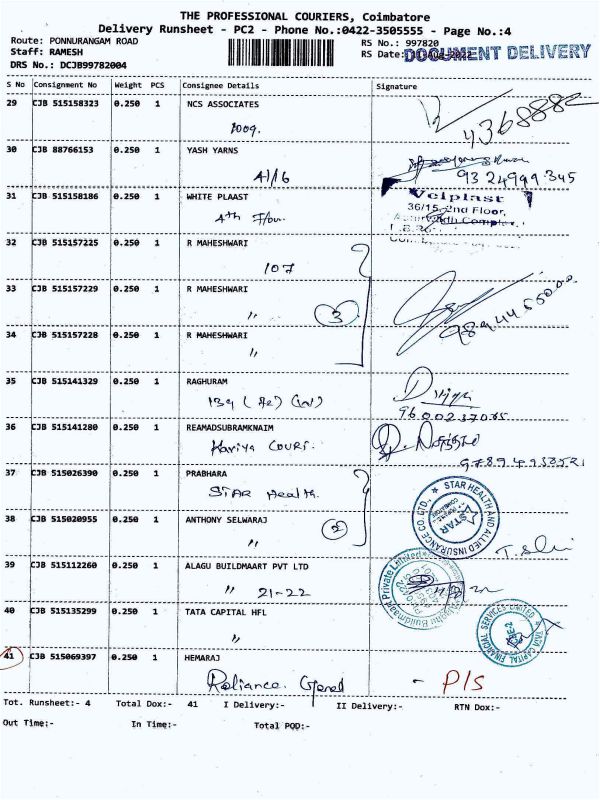 THE PROFESSIONAL COURIERS, Coimbatore
Delivery Runsheet - PC2 - Phone No.:0422-3505555 - Page No.:4
Route: PONNURANGAM ROAD
RS No.: 997820
Staff: RAMESH
RS Date:
DOCUMENT DELIVERY
DRS No.: DCJB99782004
S No Consignment No Weight PCS Consignee Details Signature
29 CJB 515158323 0.250 1 NCS ASSOCIATES
1009.
4368882
30 CJB 88766153 0.250 1 YASH YARNS
41/16
9324999345
31 CJB 515158186 0.250 1 WHITE PLAAST
4th Floor
Veiplast
36/15, 2nd Floor,
32 CJB 515157225 0.250 1 R MAHESHWARI
107
33 CJB 515157229 0.250 1 R MAHESHWARI
"
3
34 CJB 515157228 0.250 1 R MAHESHWARI
"
35 CJB 515141329 0.250 1 RAGHURAM
139
36 CJB 515141280 0.250 1 REAMADSUBRAMKNAIM
Kariya COURT.
37 CJB 515026390 0.250 1 PRABHARA
STAR Health.
STAR HEALTH AND ALLIED INSURANCE CO.LTD.,
STAR
38 CJB 515020955 0.250 1 ANTHONY SELWARAJ
"
2
39 CJB 515112260 0.250 1 ALAGU BUILDMAART PVT LTD
" 21-22
Buildmaart Private Limited
40 CJB 515135299 0.250 1 TATA CAPITAL HFL
"
TATA CAPITAL FINANCIAL SERVICES LIMITED
41 CJB 515069397 0.250 1 HEMARAJ
Reliance.
- P/S
Tot. Runsheet:- 4 Total Dox:- 41 I Delivery:- II Delivery:- RTN Dox:-
Out Time:- In Time:- Total POD:-